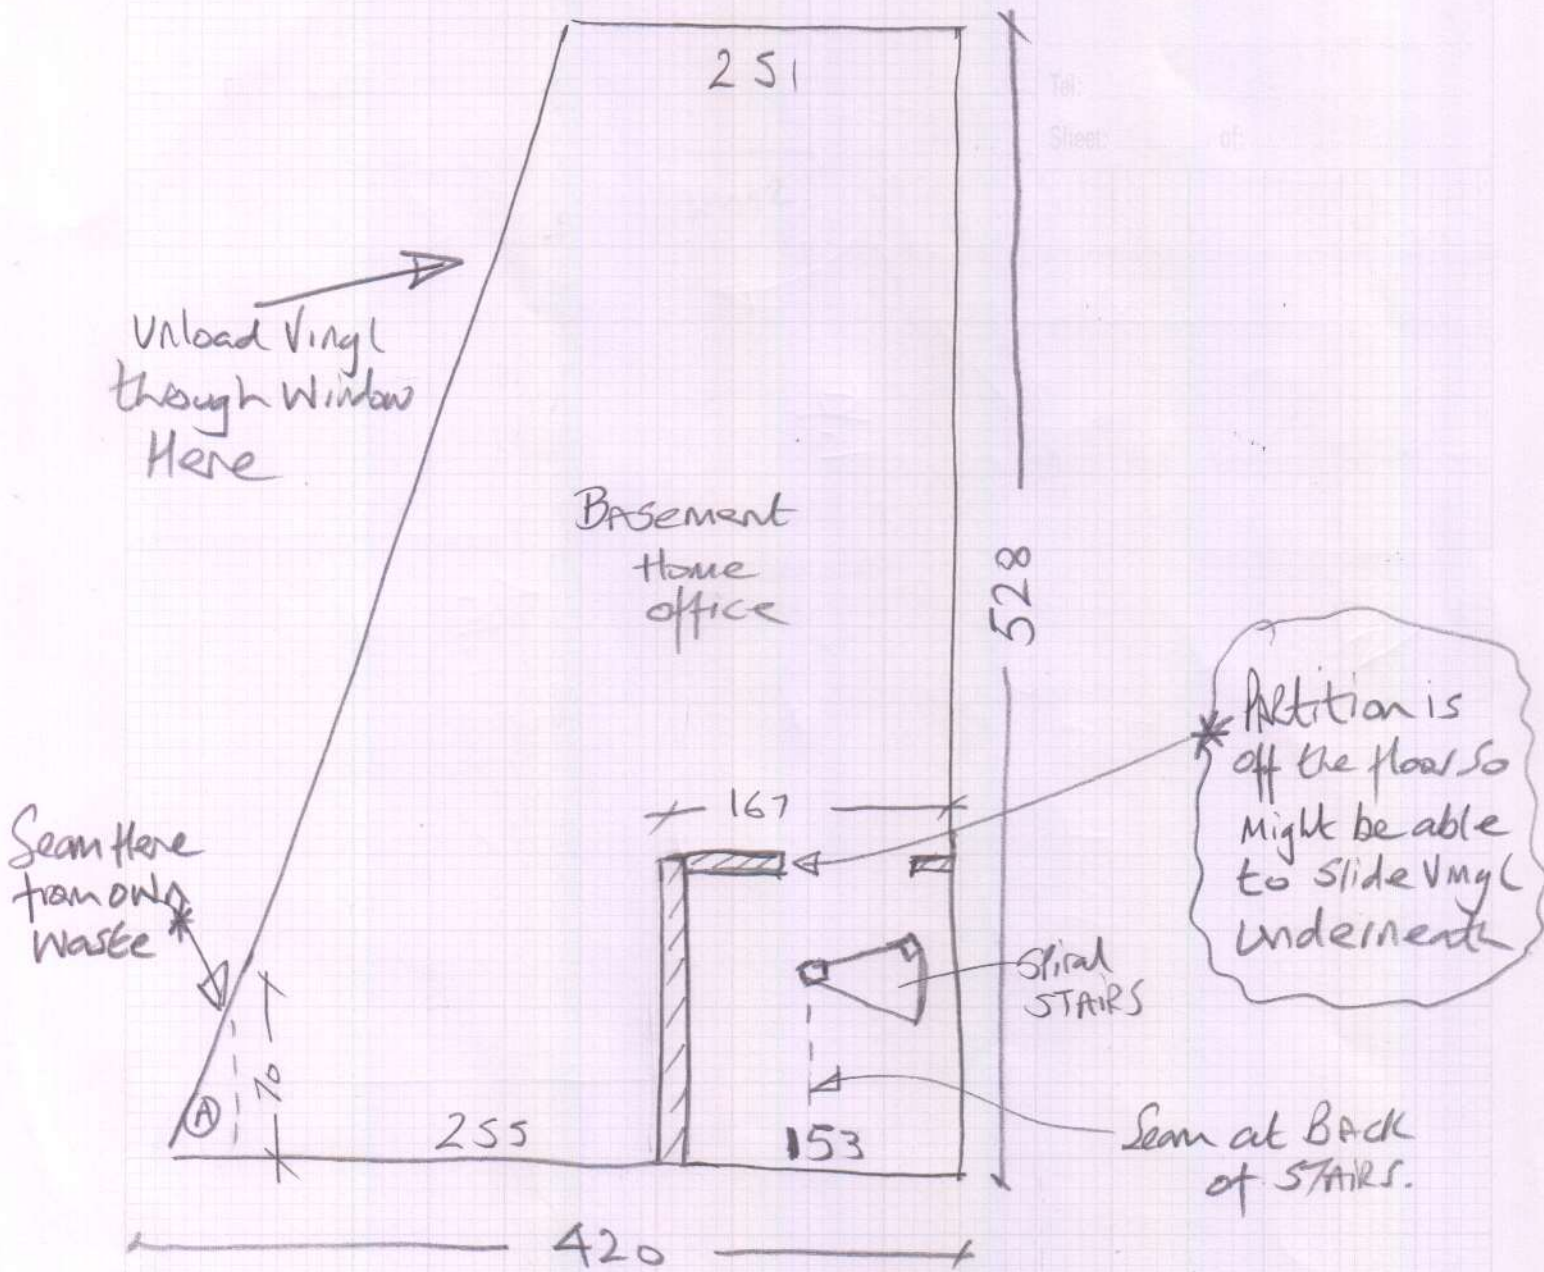 251
Tel:
Sheet: of:
Unload Vinyl
through Window
Here
Basement
Home
office
528
Partition is
off the floor so
Might be able
to slide Vinyl
underneath
167
Seam Here
from own
waste
Spiral
STAIRS
70
A
255
153
Seam at BACK
of STAIRS.
420